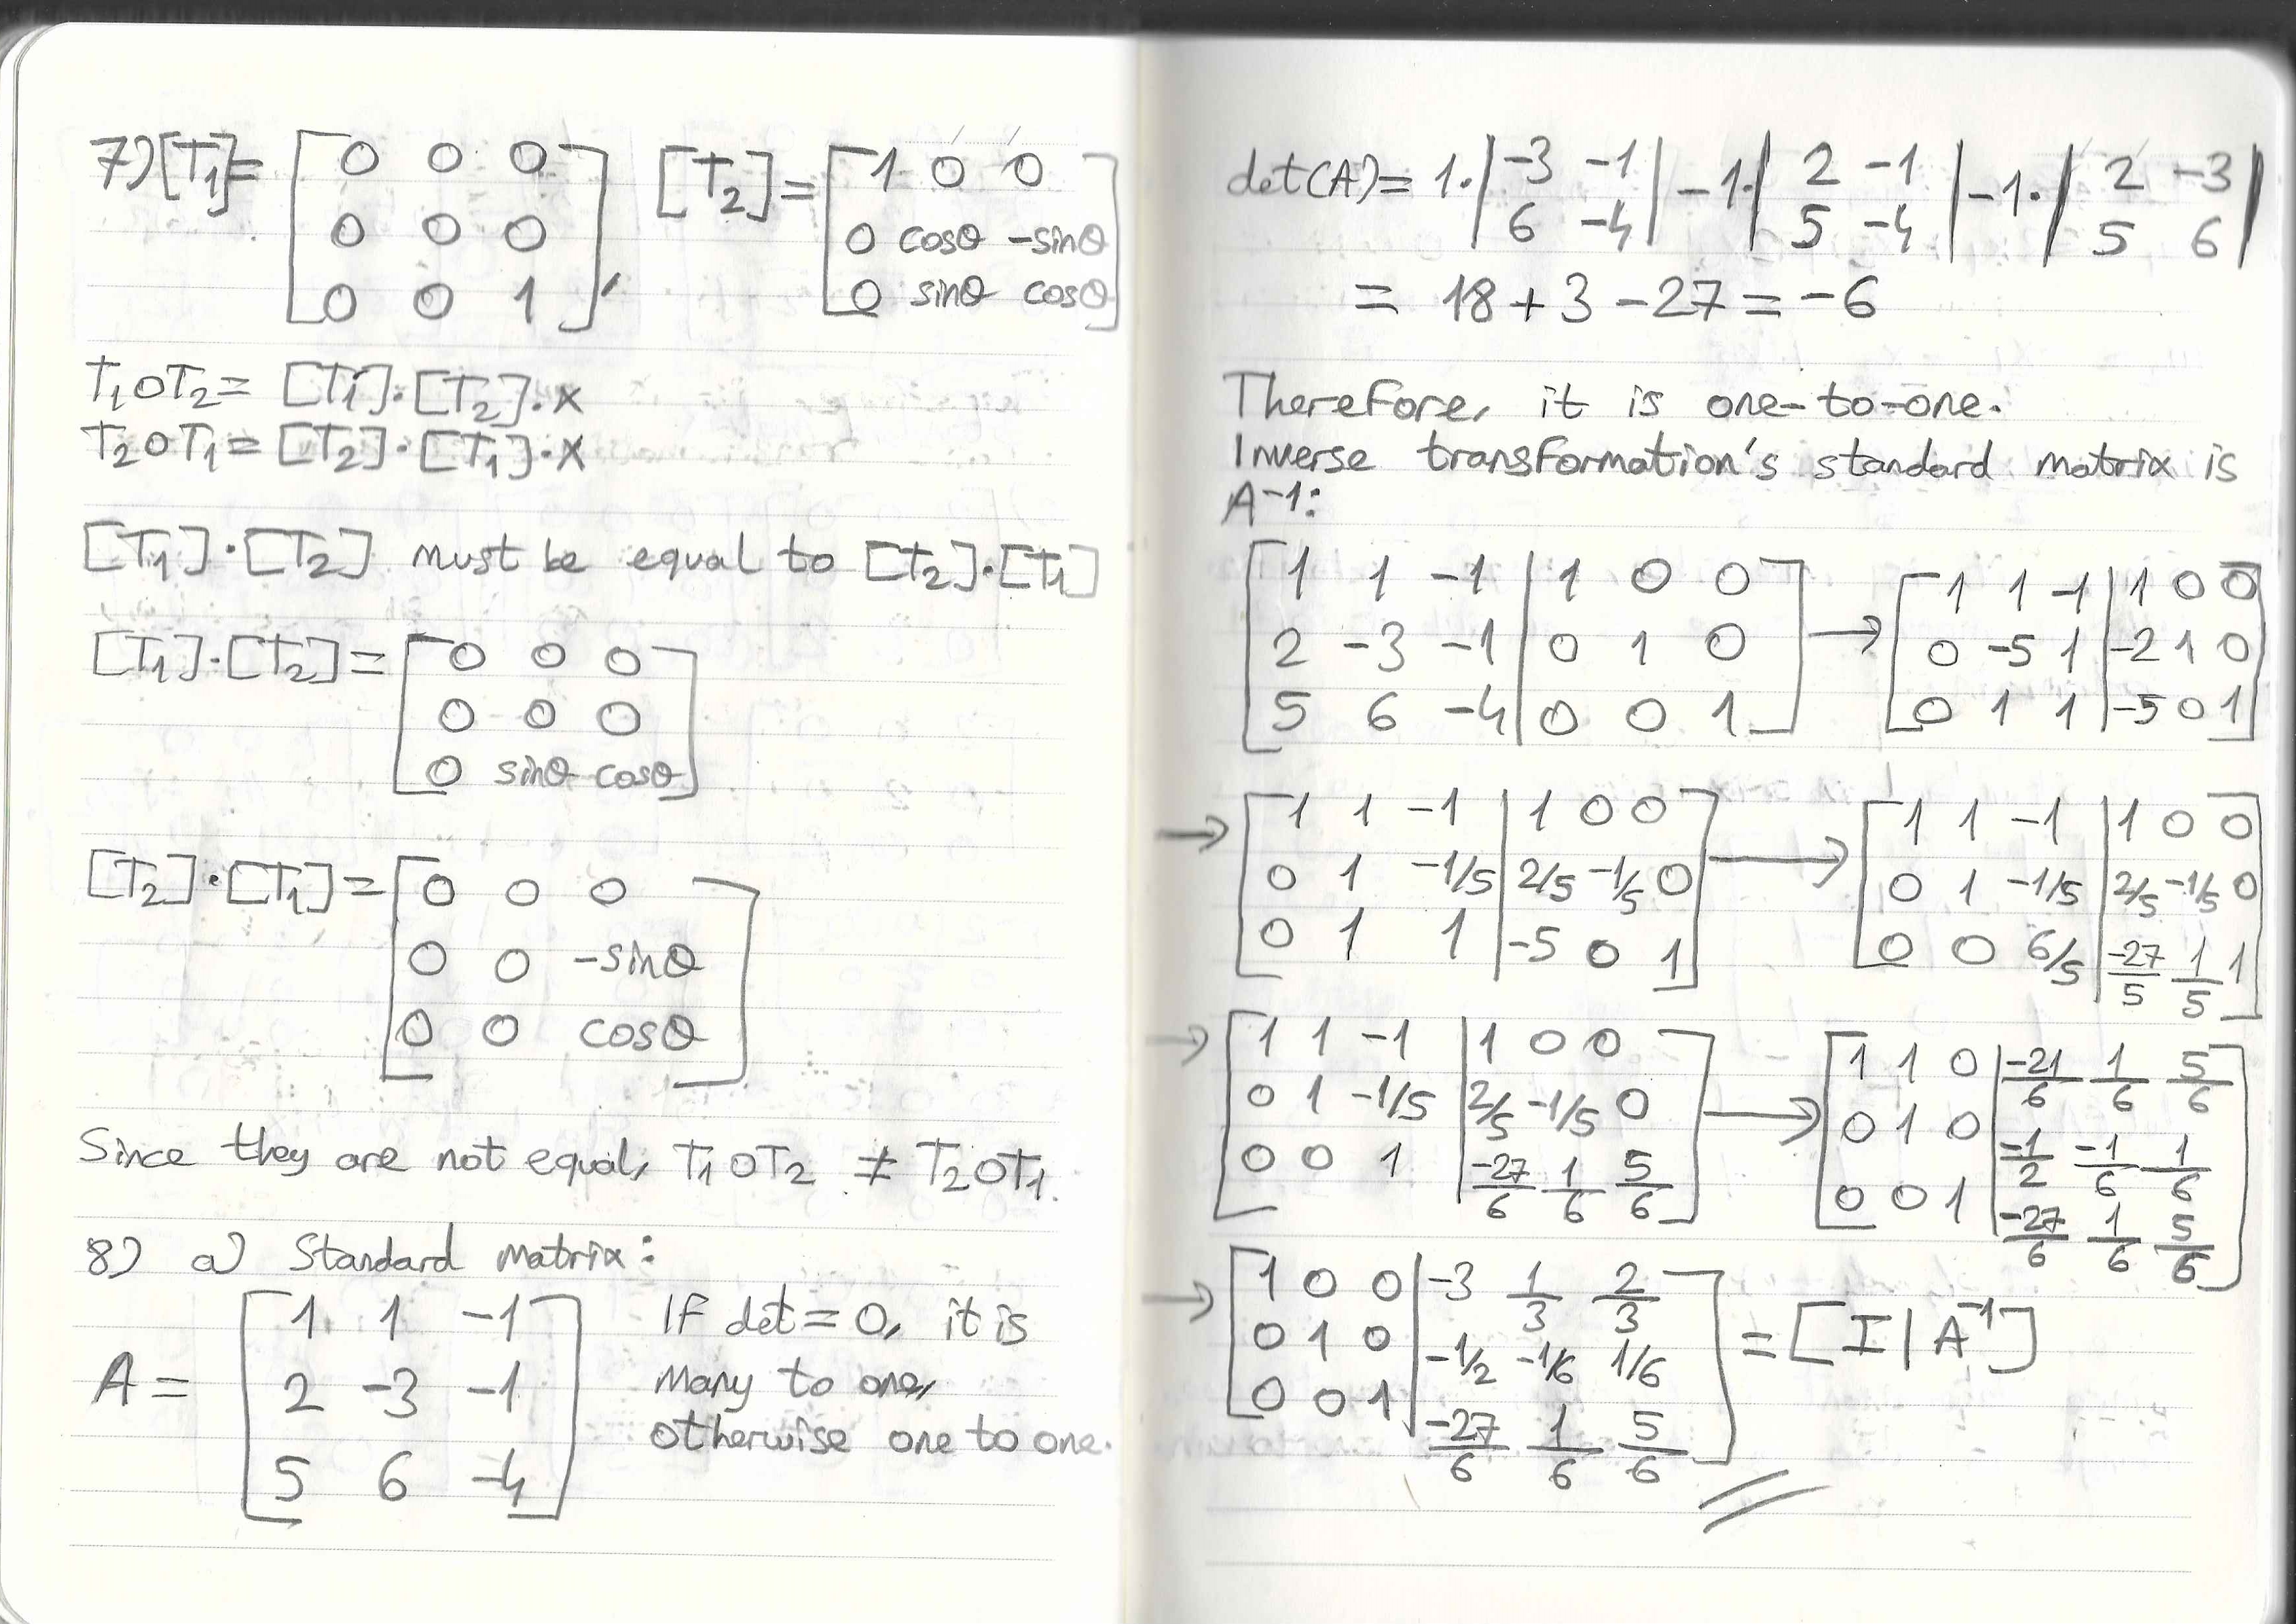 7) [T1] = [0 0 0 , [T2] = [1 0 0
0 0 0 0 cosθ -sinθ
0 0 1] 0 sinθ cosθ]
T1oT2 = [T1].[T2].x
T2oT1 = [T2].[T1].x
[T1].[T2] must be equal to [T2].[T1]
[T1].[T2] = [0 0 0
0 0 0
0 sinθ cosθ]
[T2].[T1] = [0 0 0
0 0 -sinθ
0 0 cosθ]
Since they are not equal, T1oT2 ≠ T2oT1.
8) a) Standard matrix:
A = [1 1 -1
2 -3 -1
5 6 -4]
If det = 0, it is
many to one,
otherwise one to one.
det(A) = 1.|-3 -1| -1.|2 -1| -1.|2 -3|
|6 -4| |5 -4| |5 6|
= 18 + 3 - 27 = -6
Therefore, it is one-to-one.
Inverse transformation's standard matrix is
A-1:
[1 1 -1 | 1 0 0 → [1 1 -1 | 1 0 0
2 -3 -1 | 0 1 0 0 -5 1 | -2 1 0
5 6 -4 | 0 0 1] 0 1 1 | -5 0 1]
→ [1 1 -1 | 1 0 0 → [1 1 -1 | 1 0 0
0 1 -1/5 | 2/5 -1/5 0 0 1 -1/5 | 2/5 -1/5 0
0 1 1 | -5 0 1] 0 0 6/5 | -27/5 1/5 1]
→ [1 1 -1 | 1 0 0 → [1 1 0 | -21/6 1/6 5/6
0 1 -1/5 | 2/5 -1/5 0 0 1 0 | -1/2 -1/6 1/6
0 0 1 | -27/6 1/6 5/6] 0 0 1 | -27/6 1/6 5/6]
→ [1 0 0 | -3 1/3 2/3
0 1 0 | -1/2 -1/6 1/6 = [I | A-1]
0 0 1 | -27/6 1/6 5/6]